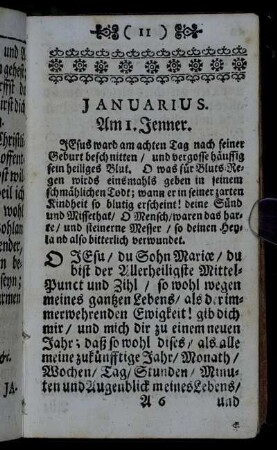 ( 11 )
JANUARIUS.
Am 1. Jenner.
JEsus ward am achten Tag nach seiner
Geburt beschnitten / und vergosse häuffig
sein heiliges Blut. O was für Bluts-Re-
gen wirds einsmahls geben in seinem
schmählichen Todt; wann er in seiner zarten
Kindheit so blutig erscheint! deine Sünd
und Missethat / O Mensch / waren das har-
te / und steinerne Messer / so deinen Hey-
land also bitterlich verwundet.
O JEsu / du Sohn Mariæ / du
bist der Allerheiligste Mittel-
Punct und Zihl / so wohl wegen
meines gantzen Lebens / als der im-
merwehrenden Ewigkeit! gib dich
mir / und mich dir zu einem neuen
Jahr; daß so wohl dises / als alle
meine zukünfftige Jahr / Monath /
Wochen / Tag / Stunden / Minu-
ten und Augenblick meines Lebens /
A 6 und